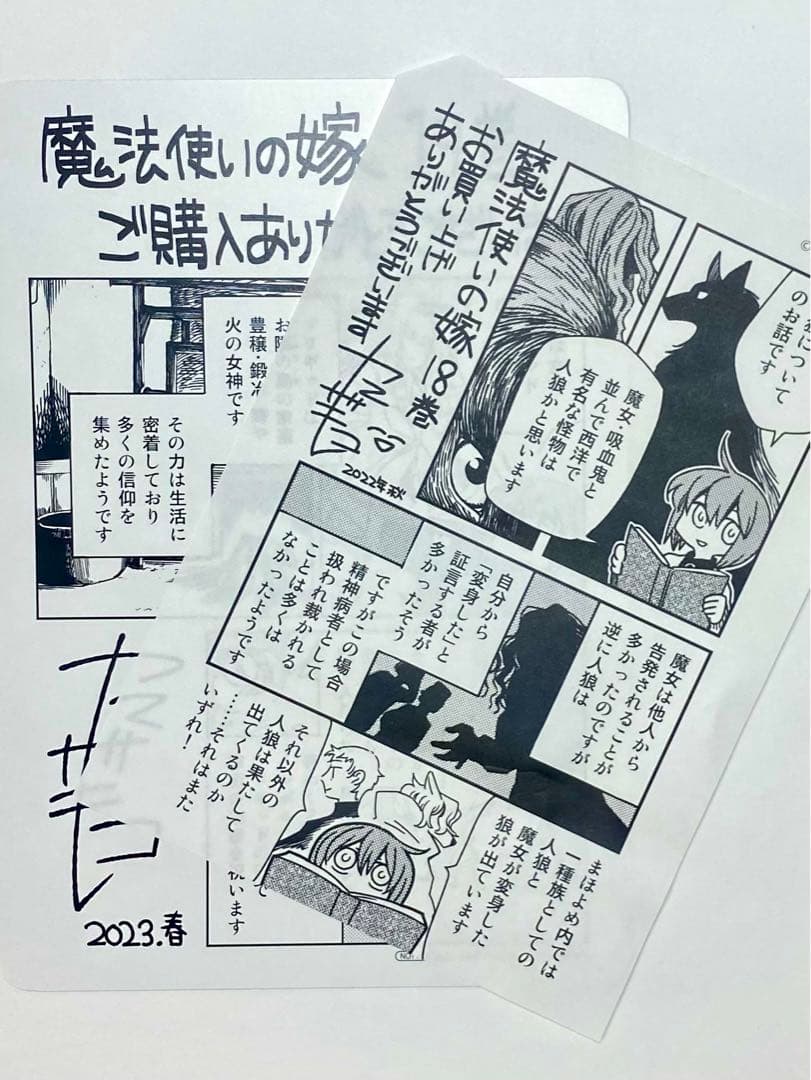 魔法使いの嫁
ご購入あり
豊穣・鍛冶
火の女神です
その力は生活に
密着しており
多くの信仰を
集めたようです
2023.春
魔法使いの嫁 18巻
お買い上げ
ありがとうございます
ヤマザキコレ
2022年秋
について
のお話です
魔女、吸血鬼と
並んで西洋で
有名な怪物は
人狼かと思います
自分から
「変身した」と
証言する者が
多かったそう
ですがこの場合
精神病者として
扱われ裁かれる
ことは多くは
なかったようです
魔女は他人から
告発されることが
多かったのですが
逆に人狼は
まほよめ内では
一種族としての
人狼と
魔女が変身した
狼が出ています
それ以外の
人狼は果たして
出てくるのか
……それはまた
いずれ!
います
©